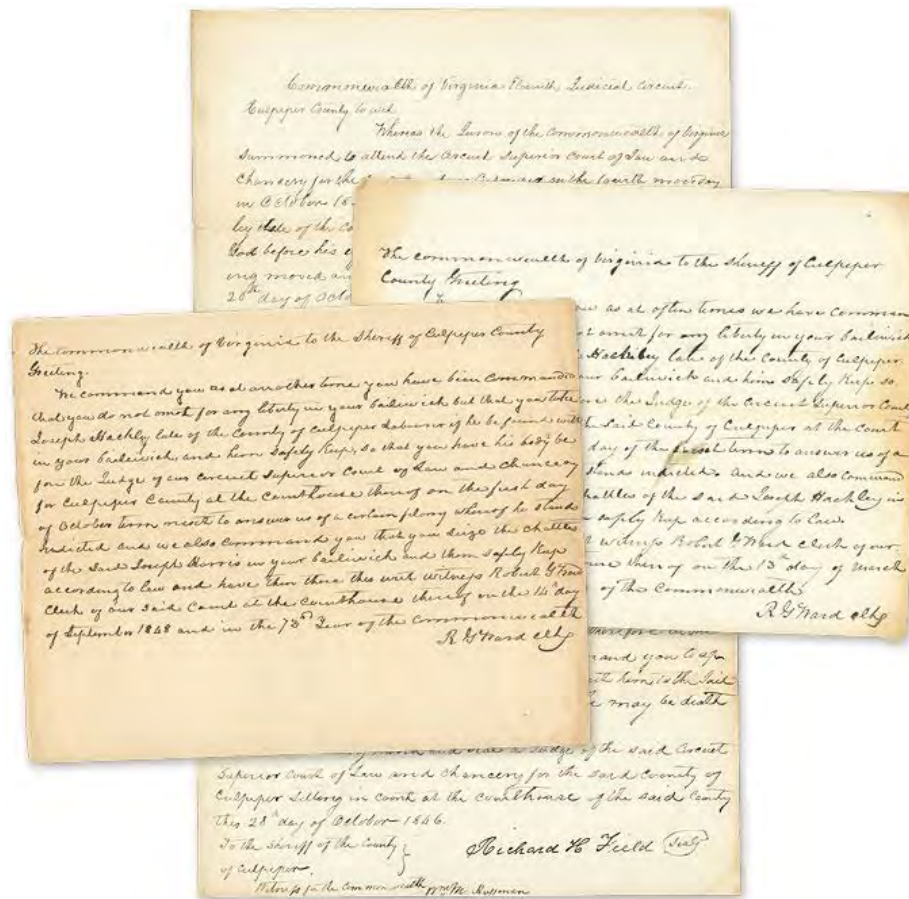 Commonwealth of Virginia Eleventh Judicial Circuit.
Culpeper County to wit
Whereas the Jurors of the Commonwealth of Virginia
Summoned to attend the Circuit Superior Court of Law and
Chancery for the on the fourth monday
in October 18
by of the
God before his
ing moved
20th day of Octo
The commonwealth of Virginia to the Sheriff of Culpeper
County Greeting
as at often times we have comman
omit for any liberty in your bailiwick
Hackley late of the County of Culpeper
bailiwick and him Safely Keep so
the Judge of the Circuit Superior Court
the Said County of Culpeper at the Court
day of the first term to answer us of a
stands indicted and we also command
chattles of the said Joseph Hackley in
safely Keep according to Law
witness Robert G Ward clerk of our
thereof on the 13th day of March
of the Commonwealth
R G Ward clk
The commonwealth of Virginia to the Sheriff of Culpeper County
Greeting.
We command you as at another time you have been Commanded
that you do not omit for any liberty in your bailiwick but that you take
Joseph Hackly late of the County of Culpeper Labourer if he be found with
in your bailiwick and him Safely Keep, so that you have his body be
for the Judge of our Circuit Superior Court of Law and Chancery
for Culpeper County at the Courthouse thereof on the first day
of October term next to answer us of a certain felony whereof he stands
Indicted and we also Command you that you Seize the chattles
of the Said Joseph Harris in your bailiwick and them Safely Keep
according to law and have then there this writ Witness Robert G Ward
Clerk of our Said Court at the Courthouse thereof on the 14th day
of September 1848 and in the 73rd Year of the Commonwealth
R G Ward clk
and you to
him to the Jail
may be death
Judge of the said Circuit
Superior Court of Law and Chancery for the said County of
Culpeper Sitting in court at the courthouse of the said County
this 28th day of October 1846.
To the Sheriff of the County
of Culpeper.
Richard H Field Seal
Witness for the Common wealth Wm M